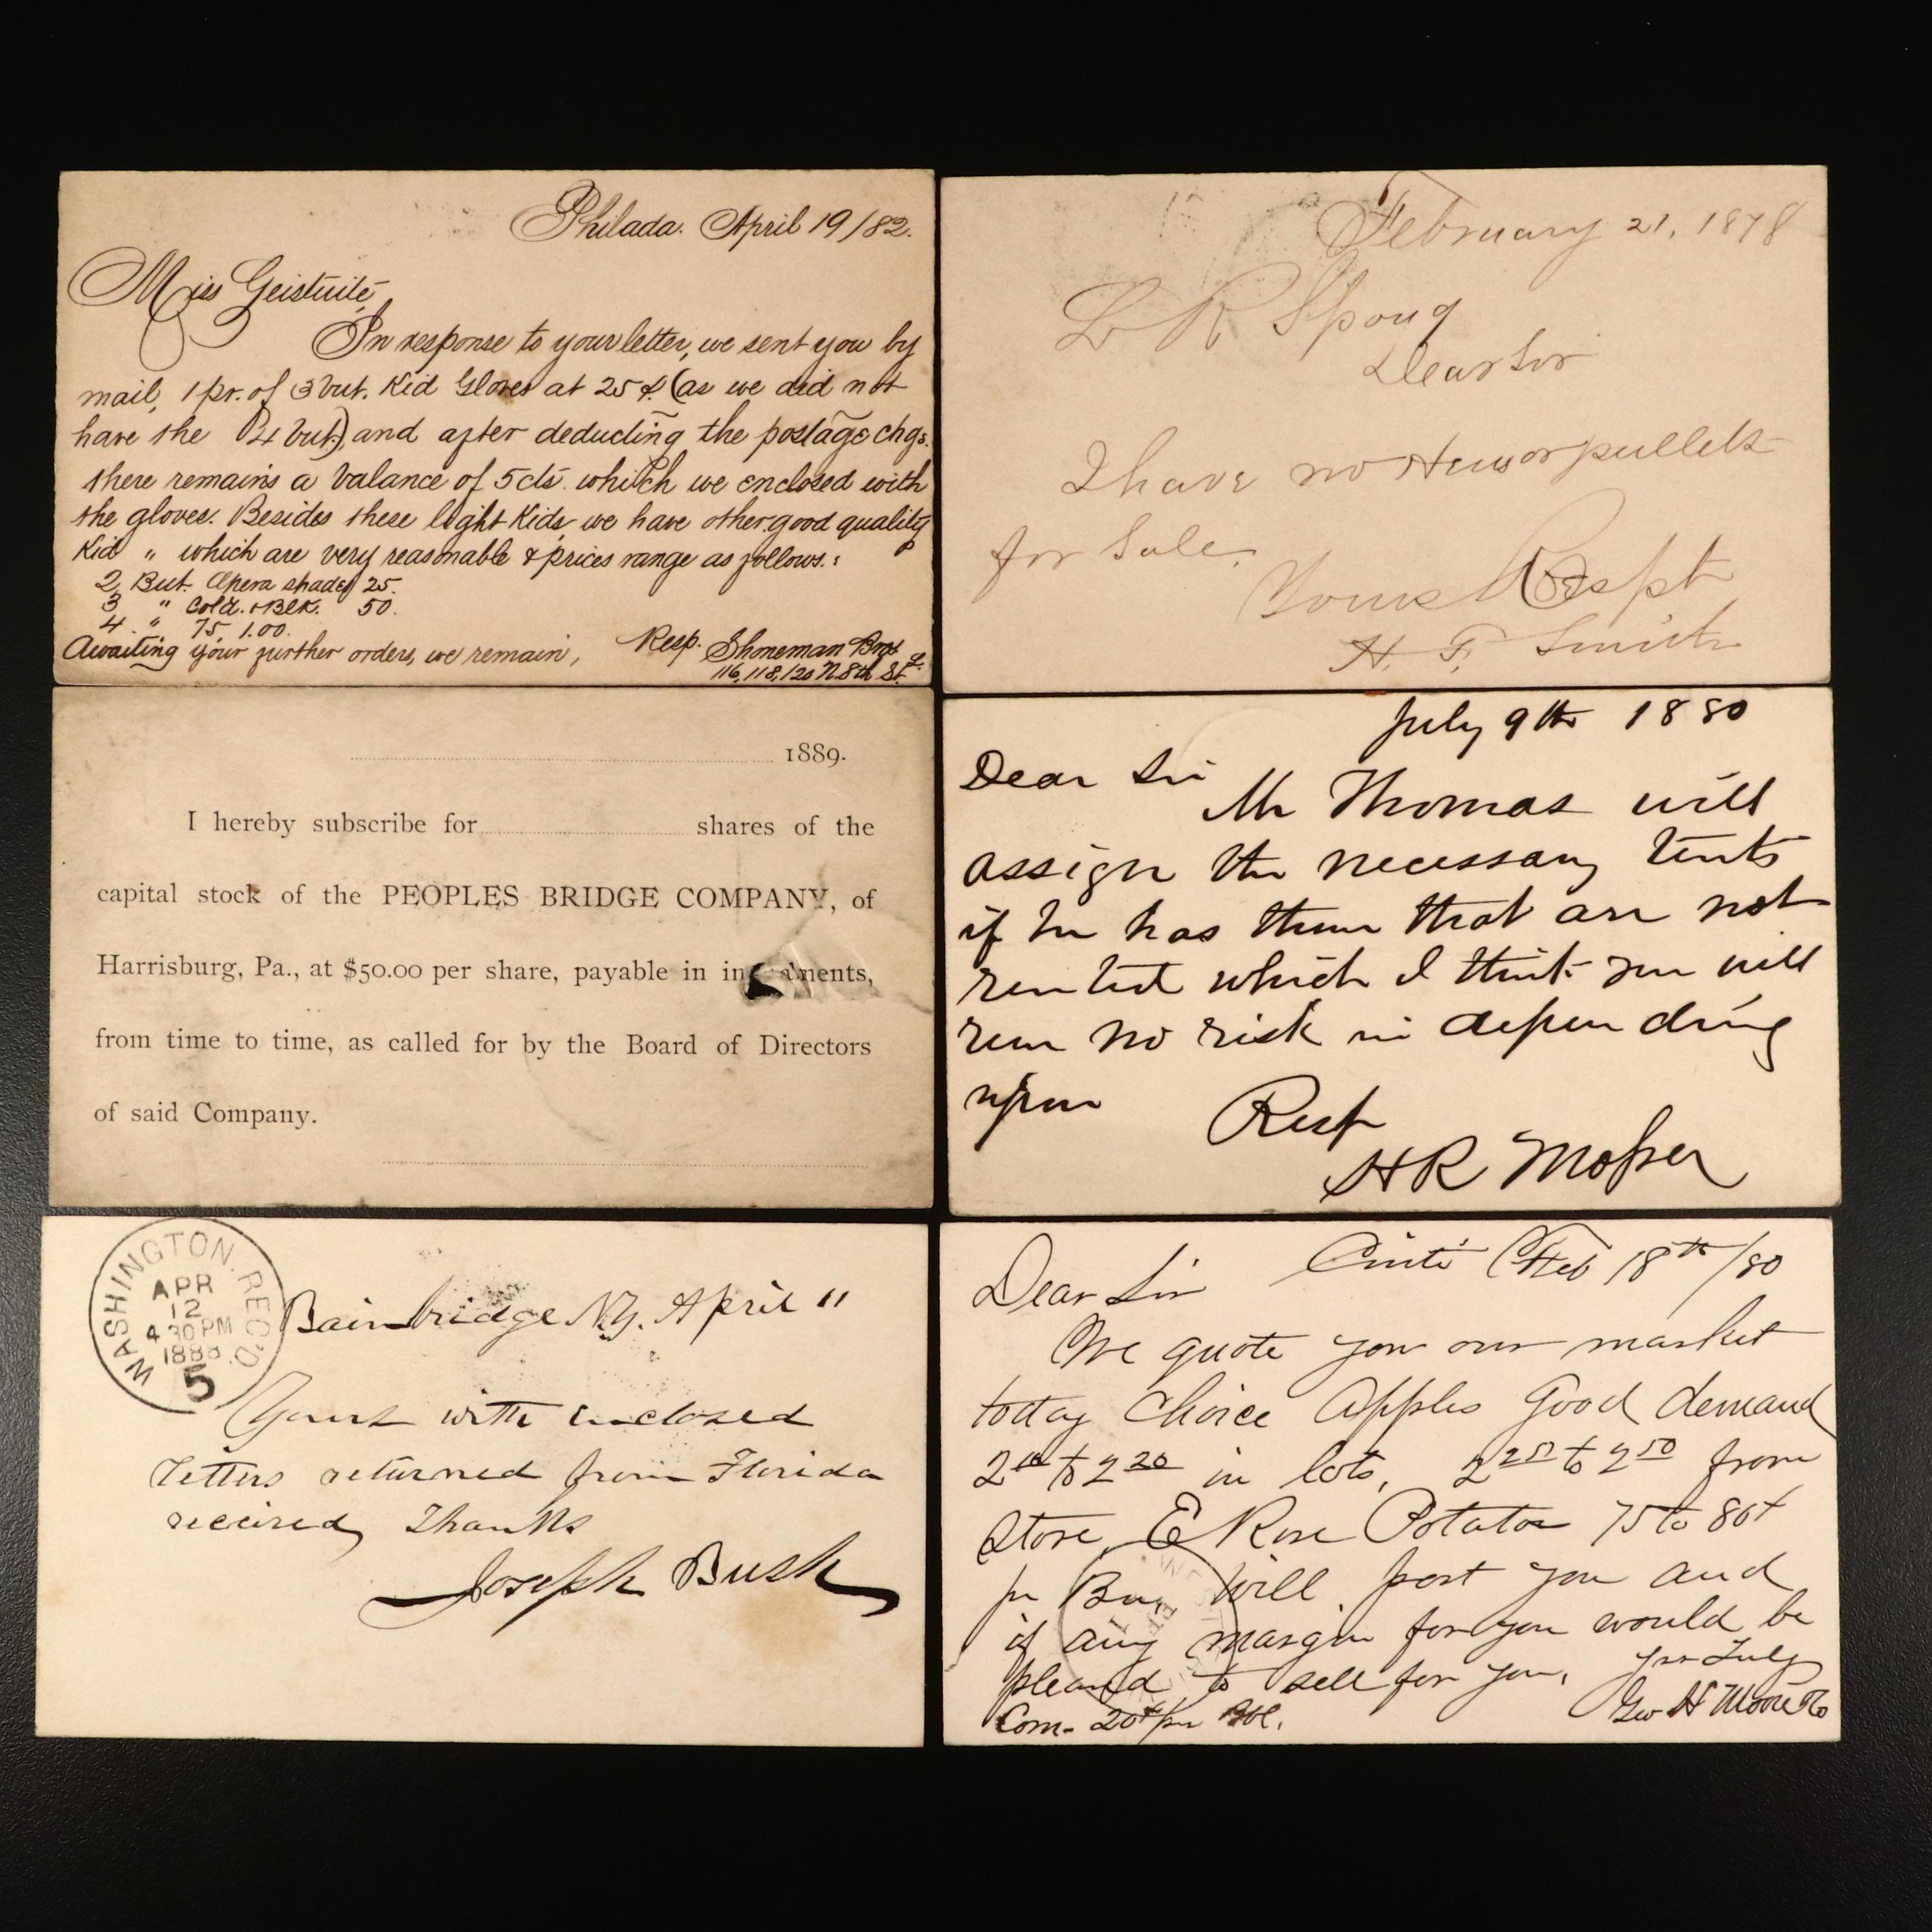 Philada. April 19/82.
Miss
In response to your letter, we sent you by
mail, 1 pr. of 3 but. Kid Gloves at 25¢ (as we did not
have the 4 but.) and after deducting the postage chgs.
there remains a balance of 5 cts. which we enclosed with
the gloves. Besides these light Kids, we have other good quality
Kid " which are very reasonable & prices range as follows:
2 But. Opera shades 25.
3 " Cold. & Blk. 50.
4 " 75, 1.00.
Awaiting your further orders, we remain,
Resp. Shoneman Bros
116, 118, 120 N 8th St.
February 21, 1878
L R Spong
Dear Sir
I have no Hens or pullets
for Sale.
Yours Respt
H. F. Smith
1889.
I hereby subscribe for shares of the
capital stock of the PEOPLES BRIDGE COMPANY, of
Harrisburg, Pa., at $50.00 per share, payable in
from time to time, as called for by the Board of Directors
of said Company.
July 9th 1880
Dear Sir
Mr Thomas will
assign the necessary tents
if he has them that are not
rented which I think you will
run no risk in depending
upon
Resp
H R Mosser
WASHINGTON. REC'D.
APR
12
4 30 PM
1888
5
Bainbridge N.Y. April 11
Yours with enclosed
letters returned from Florida
received, Thanks
Joseph Bush
Cinti Feb 18th/80
Dear Sir
We quote you our market
today Choice Apples Good demand
2 to 2 20 in lots, 2 25 to 2 50 from
Store, E Rose Potatoes 75 to 80¢
pr Bu, Will post you and
if any margin for you would be
pleased to sell for you. Yrs Truly
Com. 20¢ per Bbl. Geo H Moore & Co